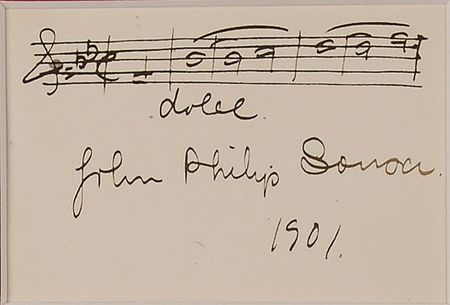 dolce.
John Philip Sousa.
1901.